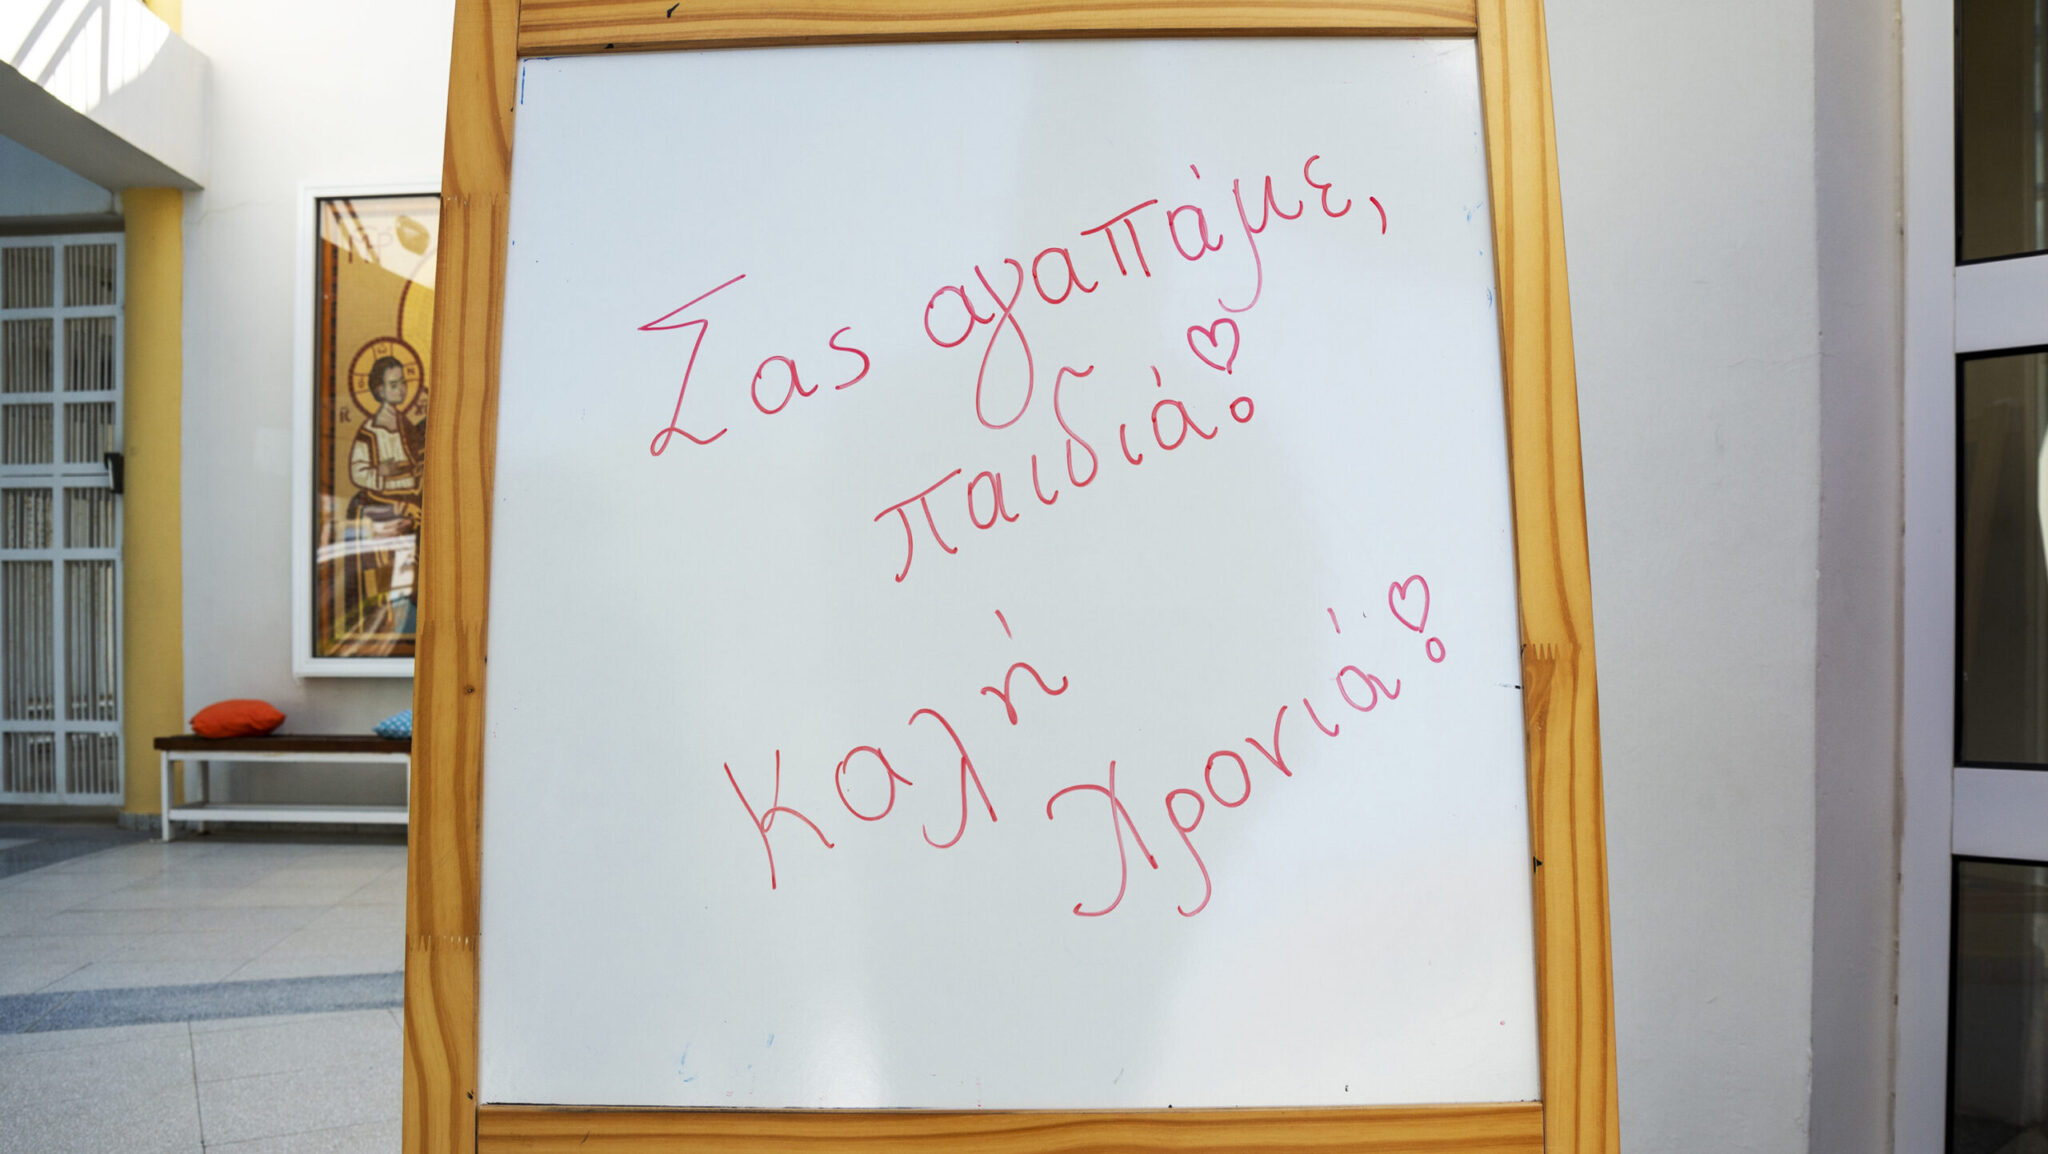 Σας αγαπάμε,
παιδιά!
Καλή
Χρονιά!